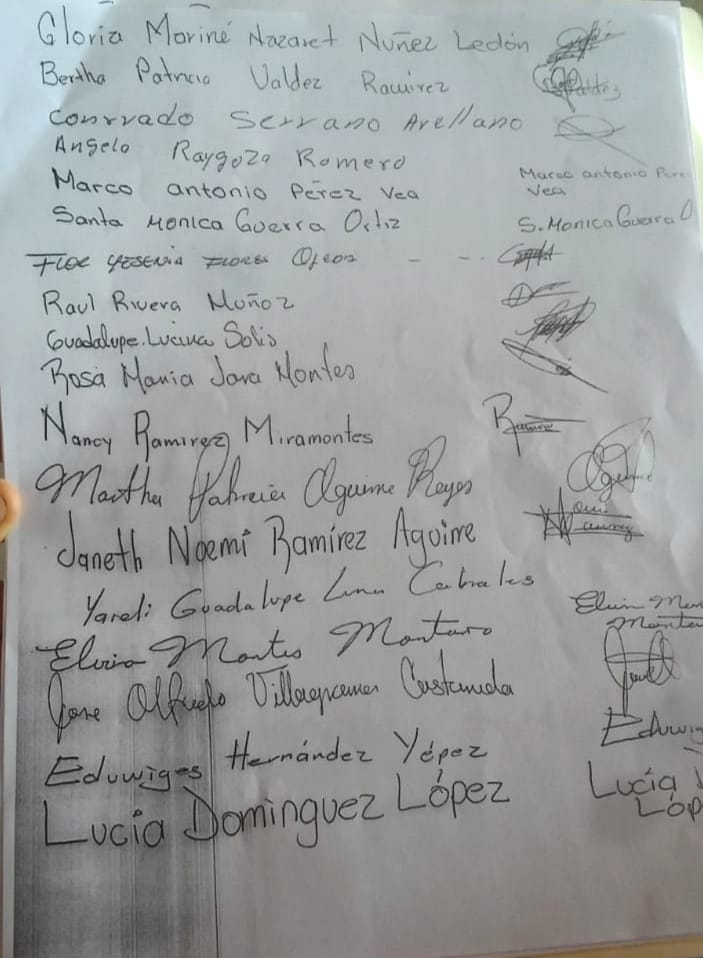 Gloria Moriné Nazaret Nuñez Ledón
Bertha Patricia Valdez Ramirez Valdez
Conrrado Serrano Arellano
Angelo Raygoza Romero
Marco antonio Pérez Vea Marco antonio Pere
Vea
Santa Monica Guerra Ortiz S. Monica Guerra O
FLOR YESENIA FLORES
Raul Rivera Muñoz
Guadalupe. Lucina Solis
Rosa Maria Jara Montes
Nancy Ramirez Miramontes
Martha Patricia Aguirre Reyes
Janeth Noemi Ramírez Aguirre
Yareli Guadalupe Luna Cabrales
Elvia Montes Montano
Jose Alfredo Villagrana Castaneda
Eduwiges Hernández Yépez Eduwig
Lucia Dominguez López Lucia
Lóp